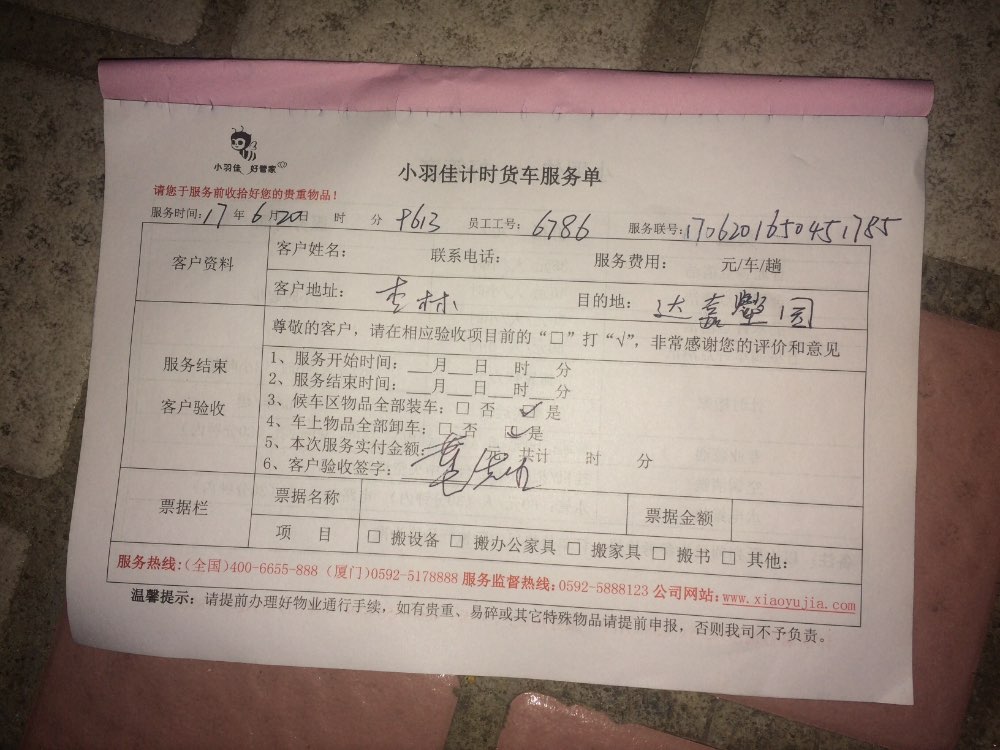 小羽佳 好管家
小羽佳计时货车服务单
请您于服务前收拾好您的贵重物品！
服务时间：17年6月20日 时 分 9613 员工工号：6786 服务联号：170620165045 1785
客户资料
客户姓名： 联系电话： 服务费用： 元/车/趟
客户地址：杏林 目的地：达嘉馨园
服务结束
客户验收
尊敬的客户，请在相应验收项目前的“□”打“√”，非常感谢您的评价和意见
1、服务开始时间：___月___日___时___分
2、服务结束时间：___月___日___时___分
3、候车区物品全部装车：□ 否 ☑ 是
4、车上物品全部卸车：□ 否 ☑ 是
5、本次服务实付金额： 元 共计 时 分
6、客户验收签字：
票据栏
票据名称 票据金额
项 目 □ 搬设备 □ 搬办公家具 □ 搬家具 □ 搬书 □ 其他：
服务热线：(全国)400-6655-888 (厦门)0592-5178888 服务监督热线：0592-5888123 公司网站：www.xiaoyujia.com
温馨提示：请提前办理好物业通行手续，如有贵重、易碎或其它特殊物品请提前申报，否则我司不予负责。